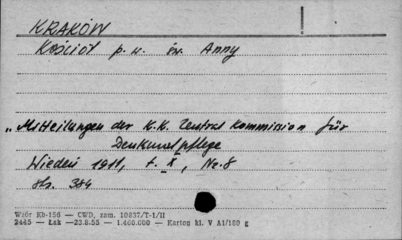 KRAKÓW
Kościół p. w. św. Anny
„Mitteilungen der K.K. Zentral Kommission für
Denkmalpflege
Wiedeń 1911, t. X, Nr. 8
str. 384
Wzór Kb-156 — CWD, zam. 10837/T-1/II
2445 — Łak —23.8.55 — 1.460.000 — Karton kl. V A1/180 g